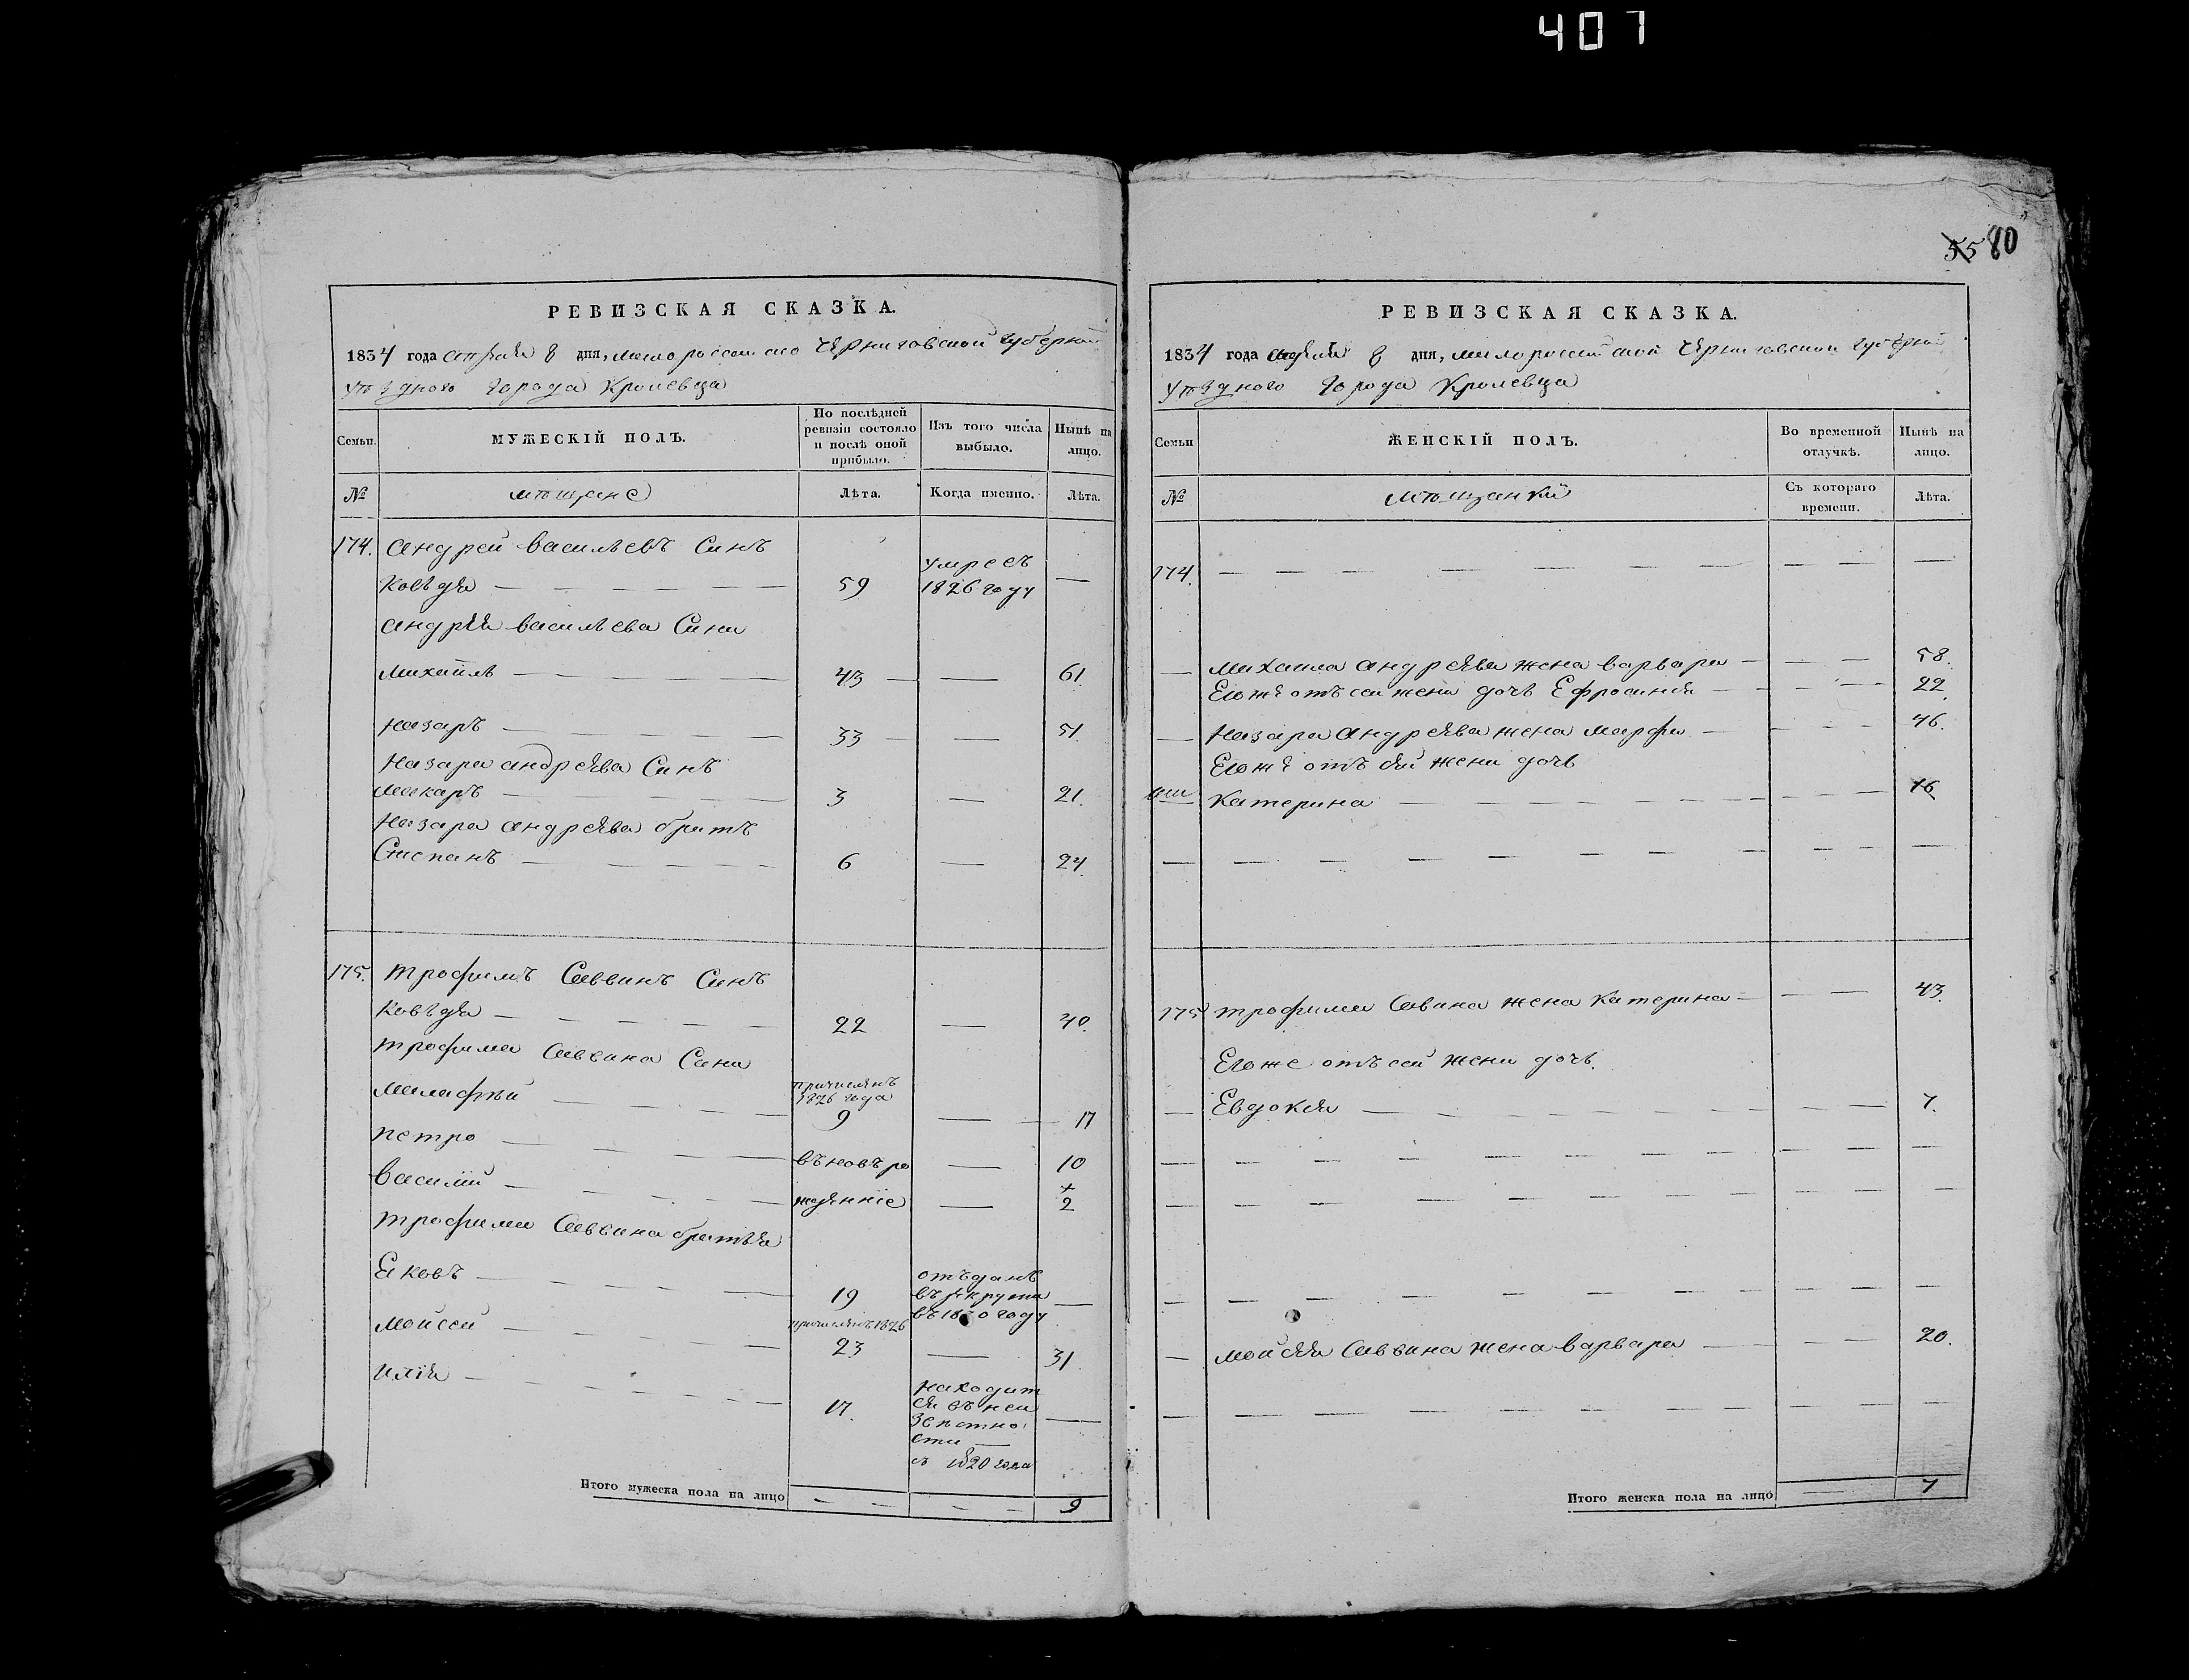 407
55 80
РЕВИЗСКАЯ СКАЗКА.
1834 года апреля 8 дня, малороссийско Черниговской губернии
уѣздного города Кролевца
Семьи.
МУЖЕСКІЙ ПОЛЪ.
По послѣдней ревизіи состояло и послѣ оной прибыло.
Изъ того числа выбыло.
Нынѣ на лицо.
№
мѣщане
Лѣта.
Когда именно.
Лѣта.
174. Андрей Васильевъ Синъ
Ковъдя — 59 умресъ 1826 году —
Андрея Васильева Сини
Михайлъ — 43 — 61.
Назаръ — 33 — 51.
Назара Андреева Синъ
Макаръ — 3 — 21.
Назара Андреева братъ
Степанъ — 6 — 24.
175. Трофимъ Саввинъ Синъ
Ковъдя — 22 — 40.
Трофима Саввина Сини
причисленъ 1826 года
Малафѣй — 9 — 17
Петро — въновъ ро — 10
Василій — жденніе — 2
Трофима Саввина братья
Яковъ — 19 отъданъ въ рекрута въ 1830 году —
Мойсей — причисленъ 1826 23 — 31.
Илія — 17. находится въ неизвѣстности — съ 1820 года —
Итого мужеска пола на лицо — — 9
РЕВИЗСКАЯ СКАЗКА.
1834 года апреля 8 дня, малороссийской Черниговской губернии
уѣздного города Кролевца
Семьи
ЖЕНСКІЙ ПОЛЪ.
Во временной отлучкѣ.
Нынѣ на лицо.
№
мѣщанки
Съ котораго времени.
Лѣта.
174. — — —
— Михаила Андреева жена Варвара — — 58.
Егоже отъ сей жени дочь Ефросинія — — 22.
— Назара Андреева жена Марфа — — 46.
Егоже отъ сей жени дочь
Катерина — — 16
— — — —
175 Трофима Савина жена Катерина — — 43.
Егоже отъ сей жени дочь.
— Евдокія — — 7.
— — — —
— — — —
— — — —
— Мойсея Саввина жена Варвара — — 20.
— — — —
Итого женска пола на лицо — 7